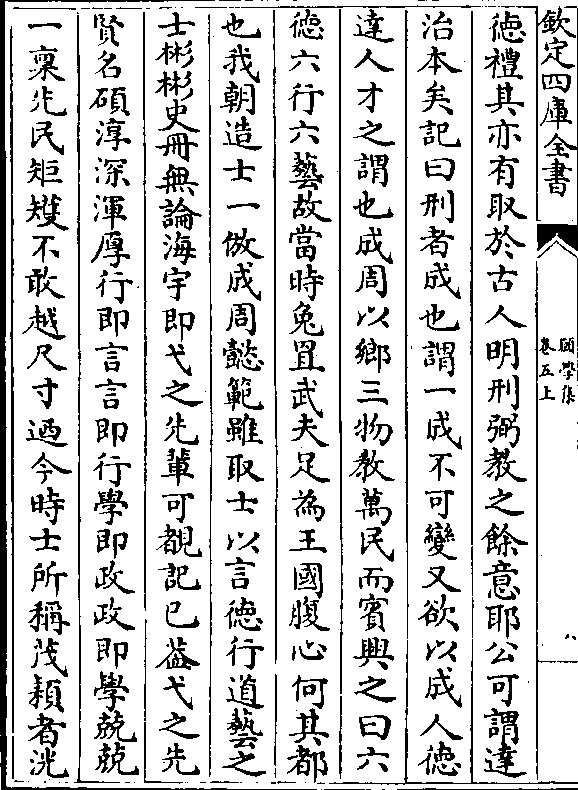 欽定四庫全書
願學集
卷五上
八
德禮其亦有取於古人明刑弼教之餘意耶公可謂達
治本矣記曰刑者成也謂一成不可變又欲以成人德
達人才之謂也成周以鄉三物教萬民而賓興之曰六
德六行六藝故當時兔罝武夫足為王國腹心何其都
也我朝造士一倣成周懿範雖取士以言德行道藝之
士彬彬史冊無論海宇即弋之先輩可覩記已葢弋之先
賢名碩淳深渾厚行即言言即行學即政政即學兢兢
一稟先民矩矱不敢越尺寸迺今時士所稱茂穎者洸